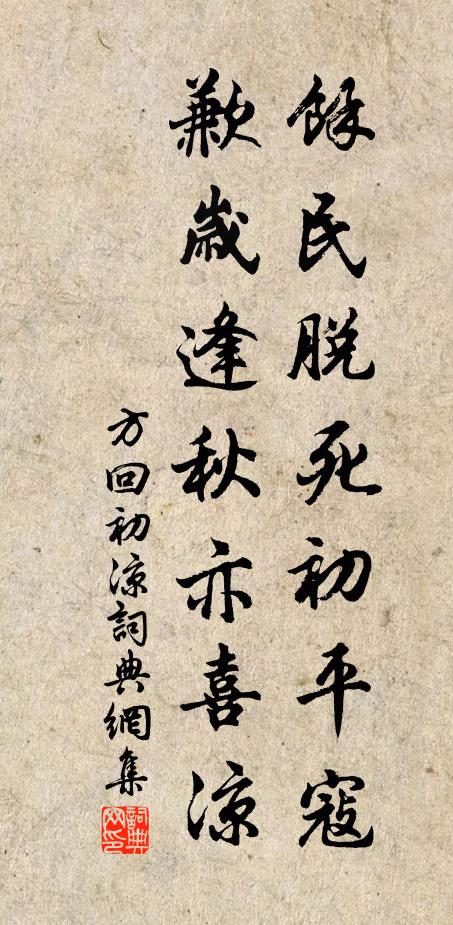 餘民脱死初平寇
歉歲逢秋亦喜涼
方回初凉詞典網集
詞典網印